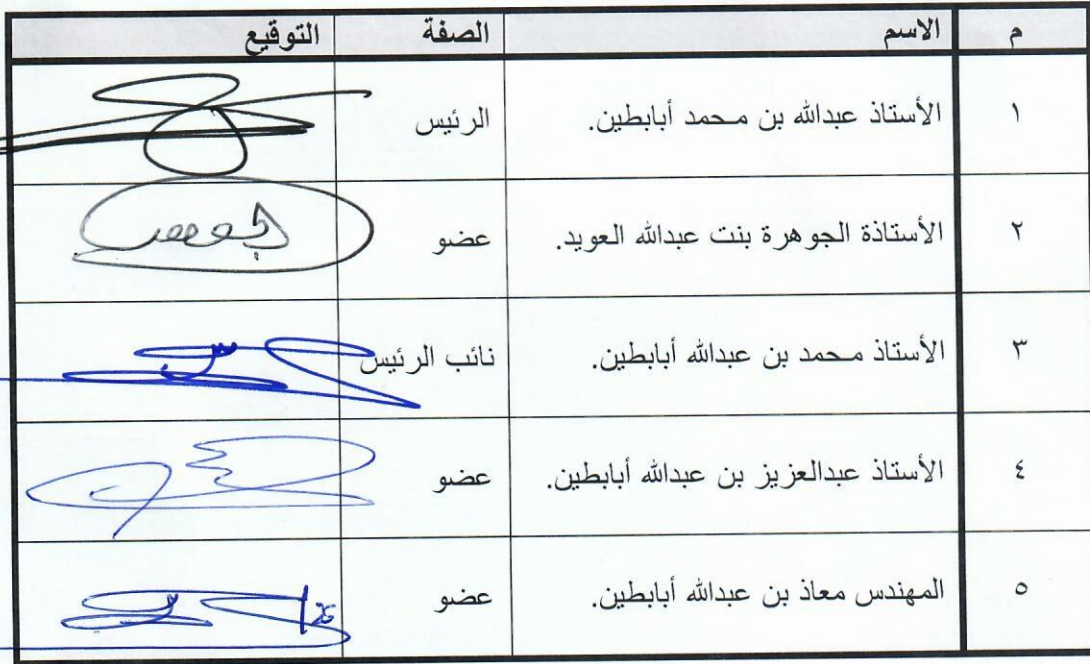 م الاسم الصفة التوقيع
١ الأستاذ عبدالله بن محمد أبابطين. الرئيس
٢ الأستاذة الجوهرة بنت عبدالله العويد. عضو
٣ الأستاذ محمد بن عبدالله أبابطين. نائب الرئيس
٤ الأستاذ عبدالعزيز بن عبدالله أبابطين. عضو
٥ المهندس معاذ بن عبدالله أبابطين. عضو